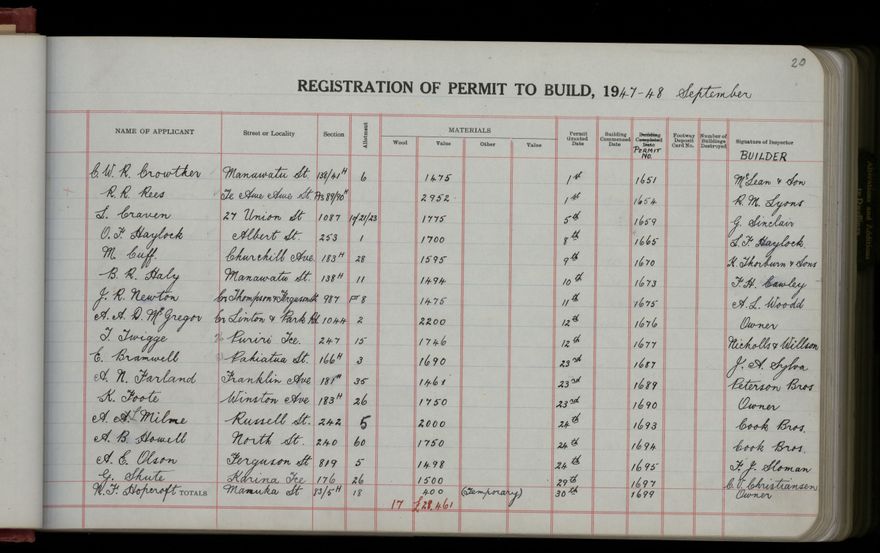 20
REGISTRATION OF PERMIT TO BUILD, 1947-48 September
NAME OF APPLICANT Street or Locality Section Allotment MATERIALS Wood Value Other Value Permit Granted Date Building Commenced Date Building Completed Date PERMIT NO. Footway Deposit Card No. Number of Buildings Destroyed Signature of Inspector BUILDER
C. W. R. Crowther Manawatu St. 138/41H 6 1475 1st 1651 McLean & Son
R. R. Rees Te Awe Awe St. 2952 1st 1654 R. M. Lyons
L. Craven 27 Union St 1087 1775 5th 1659 G. Sinclair
O. F. Haylock Albert St. 253 1 1700 8th 1665 L. F. Haylock
M. Cuff. Churchill Ave. 183H 28 1595 9th 1670 K. Thorburn & Sons
B. R. Haly Manawatu St. 138H 11 1494 10th 1673 F. H. Cawley
J. R. Newton Cr Thompson & Ferguson St 987 pt 8 1475 11th 1675 A. L. Woodd
A. A. D. McGregor Cr Linton & Park Rd. 1044 2 2200 12th 1676 Owner
T. Twigge Puriri Tce. 247 15 1746 12th 1677 Nicholls & Willson
E. Bramwell Pahiatua St. 166H 3 1690 23rd 1687 J. A. Sylva
A. N. Farland Franklin Ave 181H 35 1461 23rd 1689 Peterson Bros
K. Foote Winston Ave 183H 26 1750 23rd 1690 Owner
A. A. Milme Russell St. 242 5 2000 24th 1693 Cook Bros.
A. B. Howell North St. 240 60 1750 24th 1694 Cook Bros.
A. E. Olson Ferguson St 819 5 1498 24th 1695 F. J. Sloman
G. Shute Karina Tce 176 26 1500 29th 1697 C. V. Christiansen
R. F. Hopcroft TOTALS Manuka St 83/5H 18 400 (Temporary) 30th 1699 Owner
17 £28,461